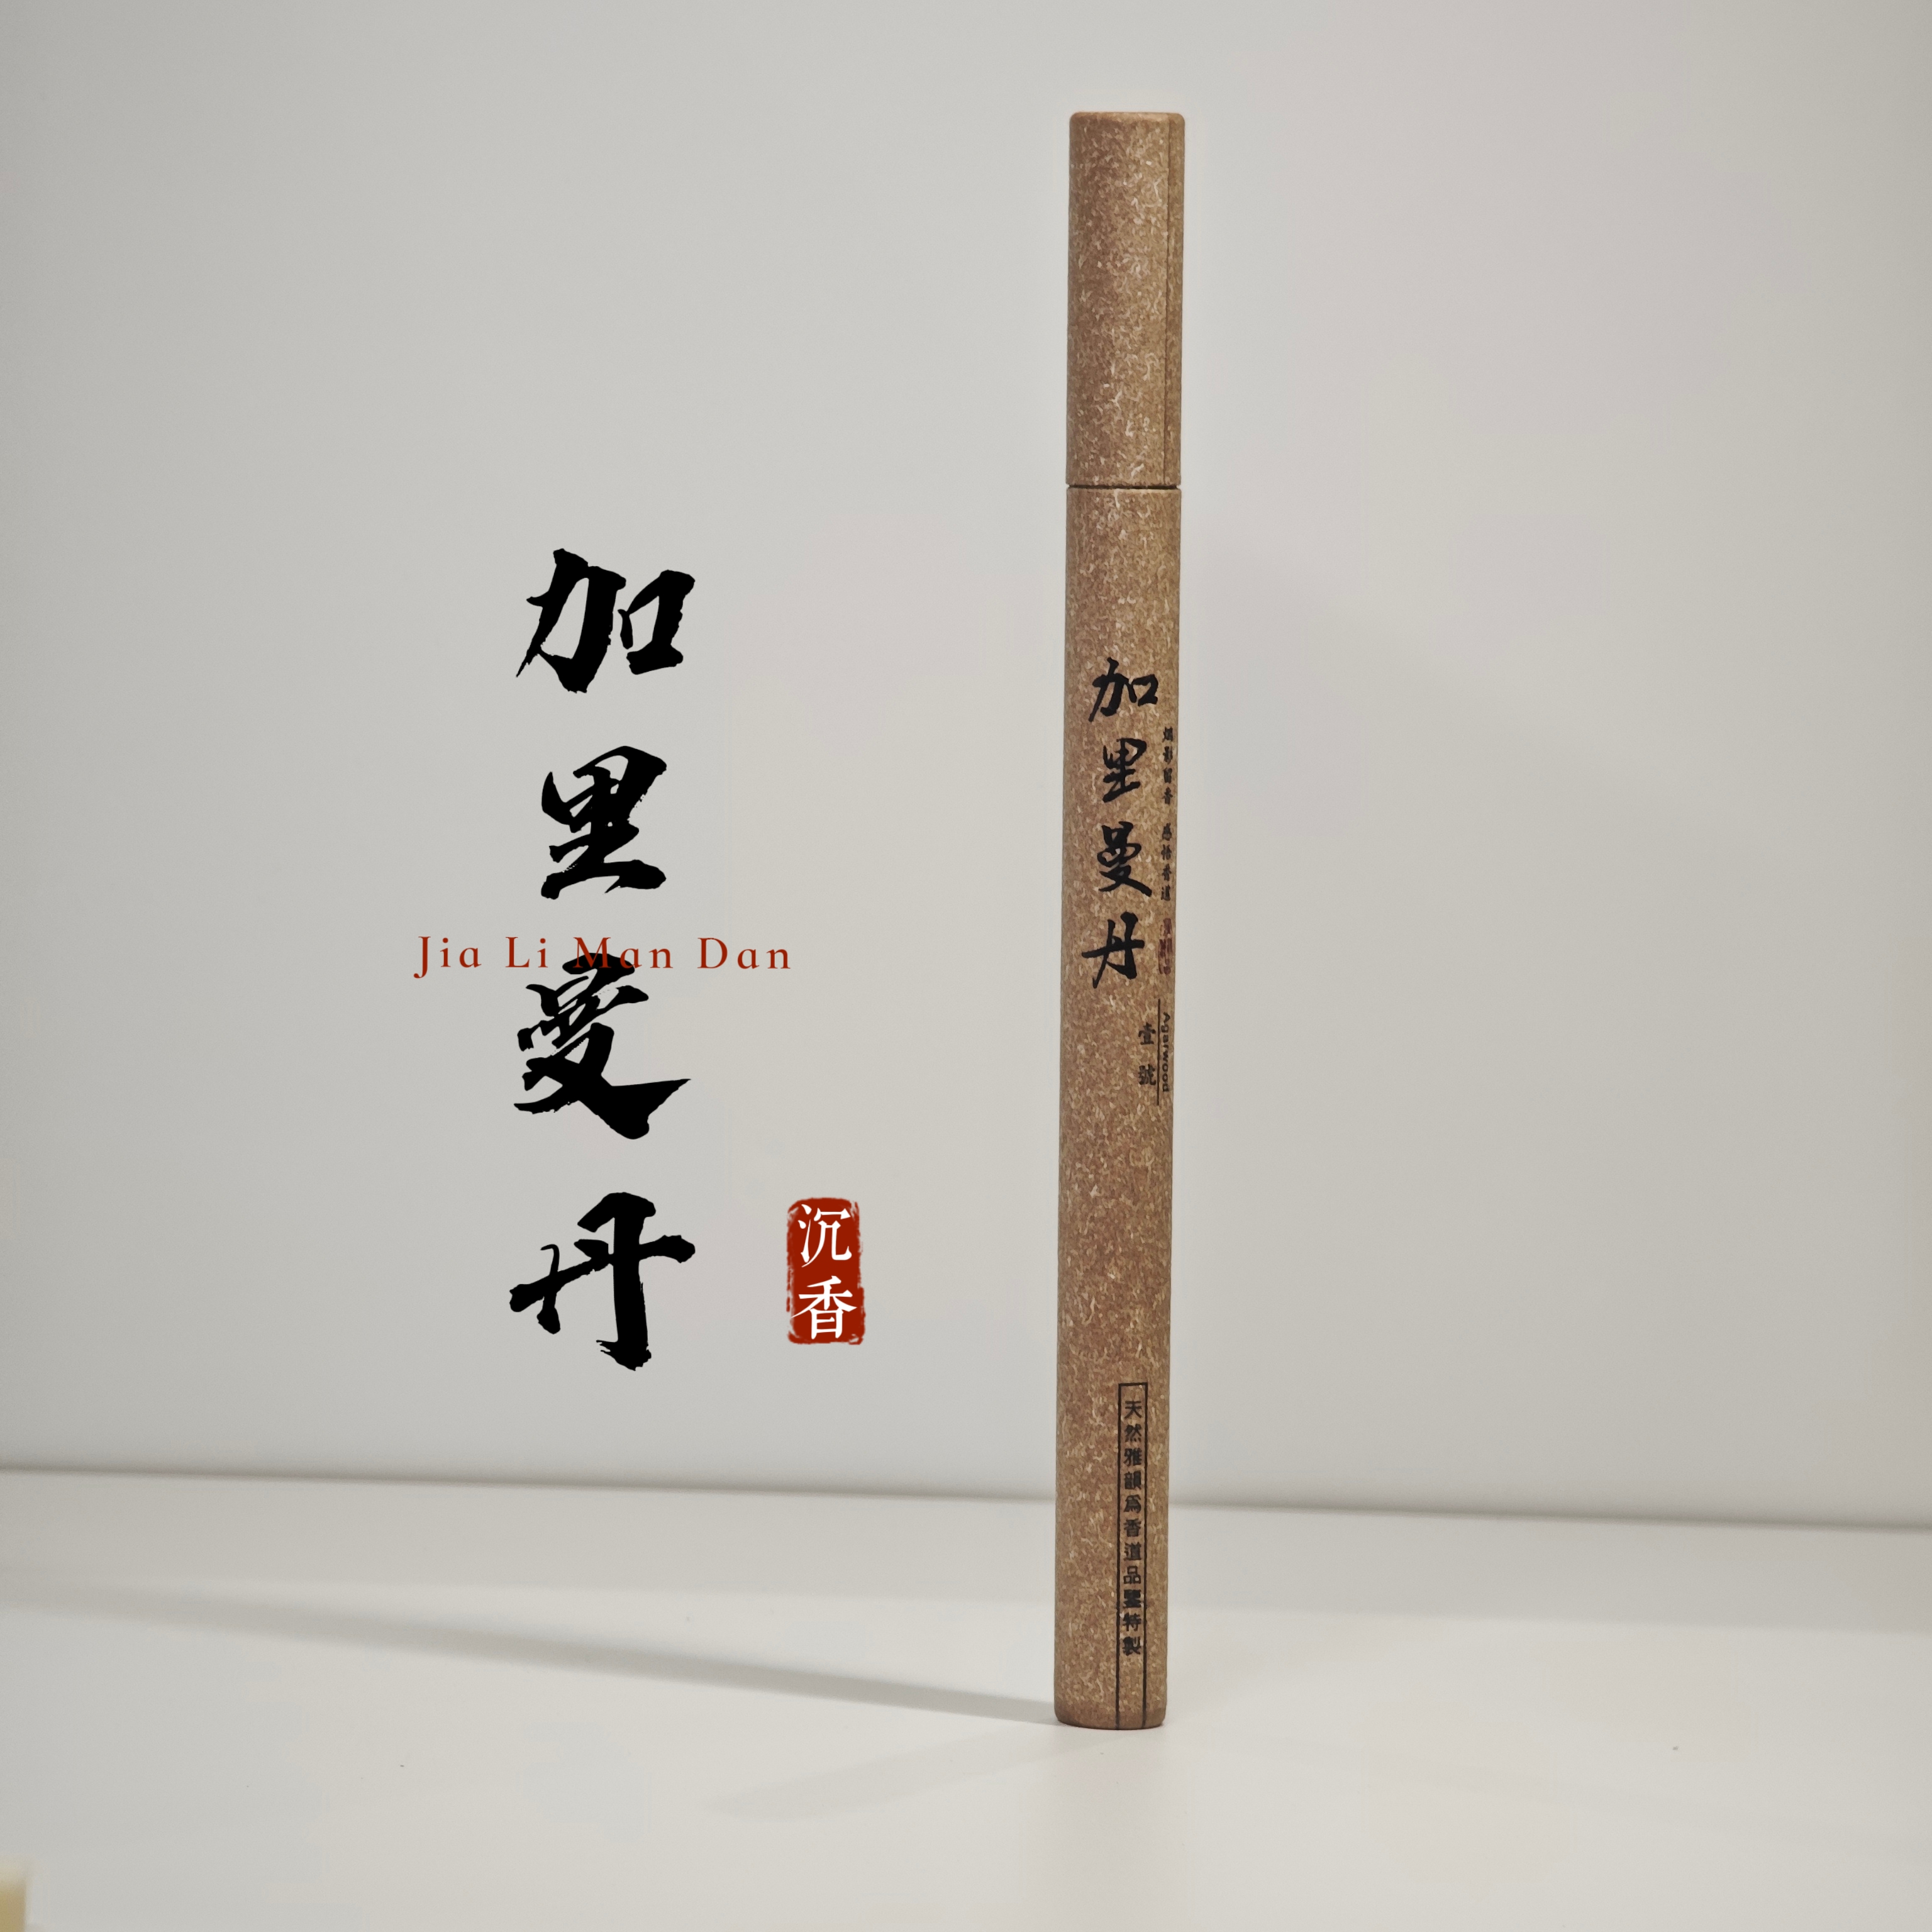 加里曼丹
Jia Li Man Dan
沉香
加里曼丹
感悟香道
Agarwood
壹號
天然雅韻爲香道品鑒特製